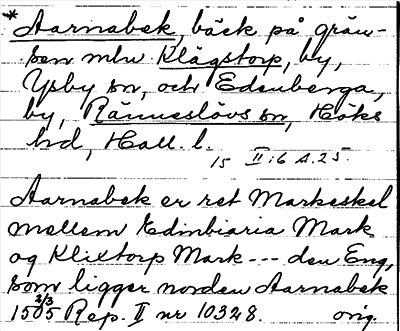 * Aarnabek, bäck på grän-
sen mln Klägstorp, by,
Ysby sn, och Edenberga,
by, Ränneslövs sn, Höks
hd, Hall. l.
15 II:6 s. 25.
Aarnabek er ret Markeskel
mellem Edinbiaria Mark
og Klixtorp Mark --- den Eng,
som ligger norden Aarnabek
1505 2/3 Rep. II nr 10328. orig.